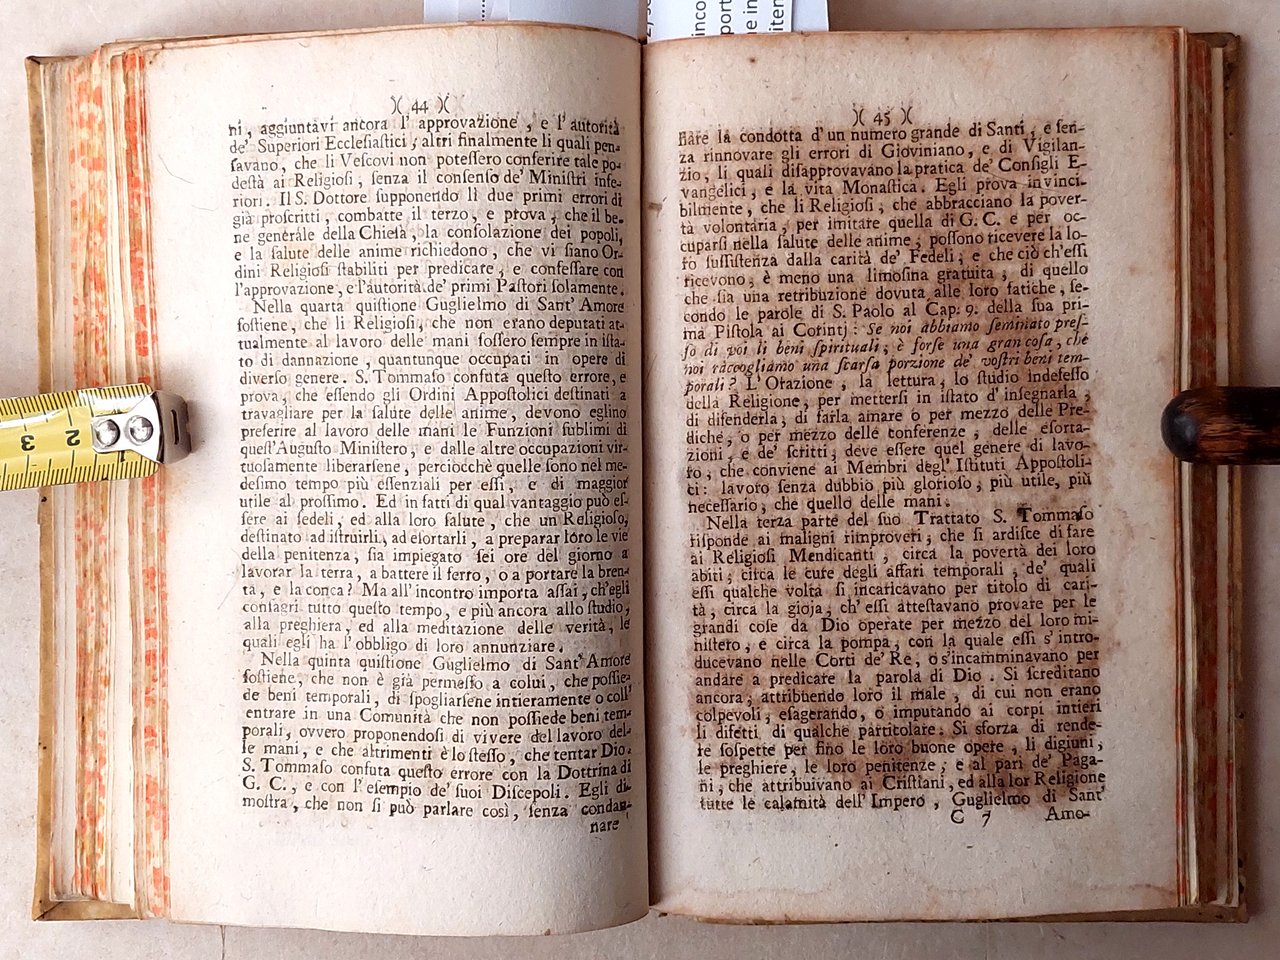 )( 44 )(
ni, aggiuntavi ancora l' approvazione, e l' autorità
de' Superiori Ecclesiastici; altri finalmente li quali pen-
savano, che li Vescovi non potessero conferire tale po-
destà ai Religiosi, senza il consenso de' Ministri infe-
riori. Il S. Dottore supponendo li due primi errori di
già proscritti, combatte il terzo, e prova, che il be-
ne generale della Chiesa, la consolazione dei popoli,
e la salute delle anime richiedono, che vi siano Or-
dini Religiosi stabiliti per predicare, e confessare con
l'approvazione, e l'autorità de' primi Pastori solamente.
Nella quarta quistione Guglielmo di Sant' Amore
sostiene, che li Religiosi, che non erano deputati at-
tualmente al lavoro delle mani fossero sempre in ista-
to di dannazione, quantunque occupati in opere di
diverso genere. S. Tommaso confuta questo errore, e
prova, che essendo gli Ordini Appostolici destinati a
travagliare per la salute delle anime, devono eglino
preferire al lavoro delle mani le Funzioni sublimi di
quest'Augusto Ministero, e dalle altre occupazioni vir-
tuosamente liberarsene, perciocchè quelle sono nel me-
desimo tempo più essenziali per essi, e di maggior
utile al prossimo. Ed in fatti di qual vantaggio può es-
sere ai fedeli, ed alla loro salute, che un Religioso,
destinato ad istruirli, ad esortarli, a preparar loro le vie
della penitenza, sia impiegato sei ore del giorno a
lavorar la terra, a battere il ferro, o a portare la bren-
ta, e la conca? Ma all' incontro importa assai, ch'egli
consagri tutto questo tempo, e più ancora allo studio,
alla preghiera, ed alla meditazione delle verità, le
quali egli ha l'obbligo di loro annunziare.
Nella quinta quistione Guglielmo di Sant' Amore
sostiene, che non è già permesso a colui, che possie-
de beni temporali, di spogliarsene intieramente o coll'
entrare in una Comunità che non possiede beni tem-
porali, ovvero proponendosi di vivere del lavoro del-
le mani, e che altrimenti è lo stesso, che tentar Dio.
S. Tommaso confuta questo errore con la Dottrina di
G. C., e con l'esempio de' suoi Discepoli. Egli di-
mostra, che non si può parlare così, senza condan-
nare
)( 45 )(
nare la condotta d'un numero grande di Santi, e sen-
za rinnovare gli errori di Gioviniano, e di Vigilan-
zio, li quali disapprovavano la pratica de' Consigli E-
vangelici, e la vita Monastica. Egli prova invinci-
bilmente, che li Religiosi, che abbracciano la pover-
tà volontaria, per imitare quella di G. C. e per oc-
cuparsi nella salute delle anime, possono ricevere la lo-
ro sussistenza dalla carità de' Fedeli; e che ciò ch'essi
ricevono, è meno una limosina gratuita, di quello
che sia una retribuzione dovuta alle loro fatiche, se-
condo le parole di S. Paolo al Cap. 9. della sua pri-
ma Pistola ai Corintj: Se noi abbiamo seminato pres-
so di voi li beni spirituali, è forse una gran cosa, che
noi raccogliamo una scarsa porzione de' vostri beni tem-
porali? L'Orazione, la lettura, lo studio indefesso
della Religione, per mettersi in istato d'insegnarla,
di difenderla, di farla amare o per mezzo delle Pre-
diche, o per mezzo delle conferenze, delle esorta-
zioni, e de' scritti; deve essere quel genere di lavo-
ro, che conviene ai Membri degl' Istituti Appostoli-
ci: lavoro senza dubbio più glorioso, più utile, più
necessario, che quello delle mani.
Nella terza parte del suo Trattato S. Tommaso
risponde ai maligni rimproveri, che si ardisce di fare
ai Religiosi Mendicanti, circa la povertà dei loro
abiti; circa le cure degli affari temporali, de' quali
essi qualche volta si incaricavano per titolo di cari-
tà, circa la gioja, ch' essi attestavano provare per le
grandi cose da Dio operate per mezzo del loro mi-
nistero, e circa la pompa, con la quale essi s'intro-
ducevano nelle Corti de' Re, o s'incamminavano per
andare a predicare la parola di Dio. Si screditano
ancora, attribuendo loro il male, di cui non erano
colpevoli, esagerando, o imputando ai corpi intieri
li difetti di qualche particolare: Si sforza di rende-
re sospette per fino le loro buone opere, li digiuni,
le preghiere, le loro penitenze; e al pari de' Paga-
ni, che attribuivano ai Cristiani, ed alla lor Religione
tutte le calamità dell'Impero, Guglielmo di Sant'
C 7 Amo-